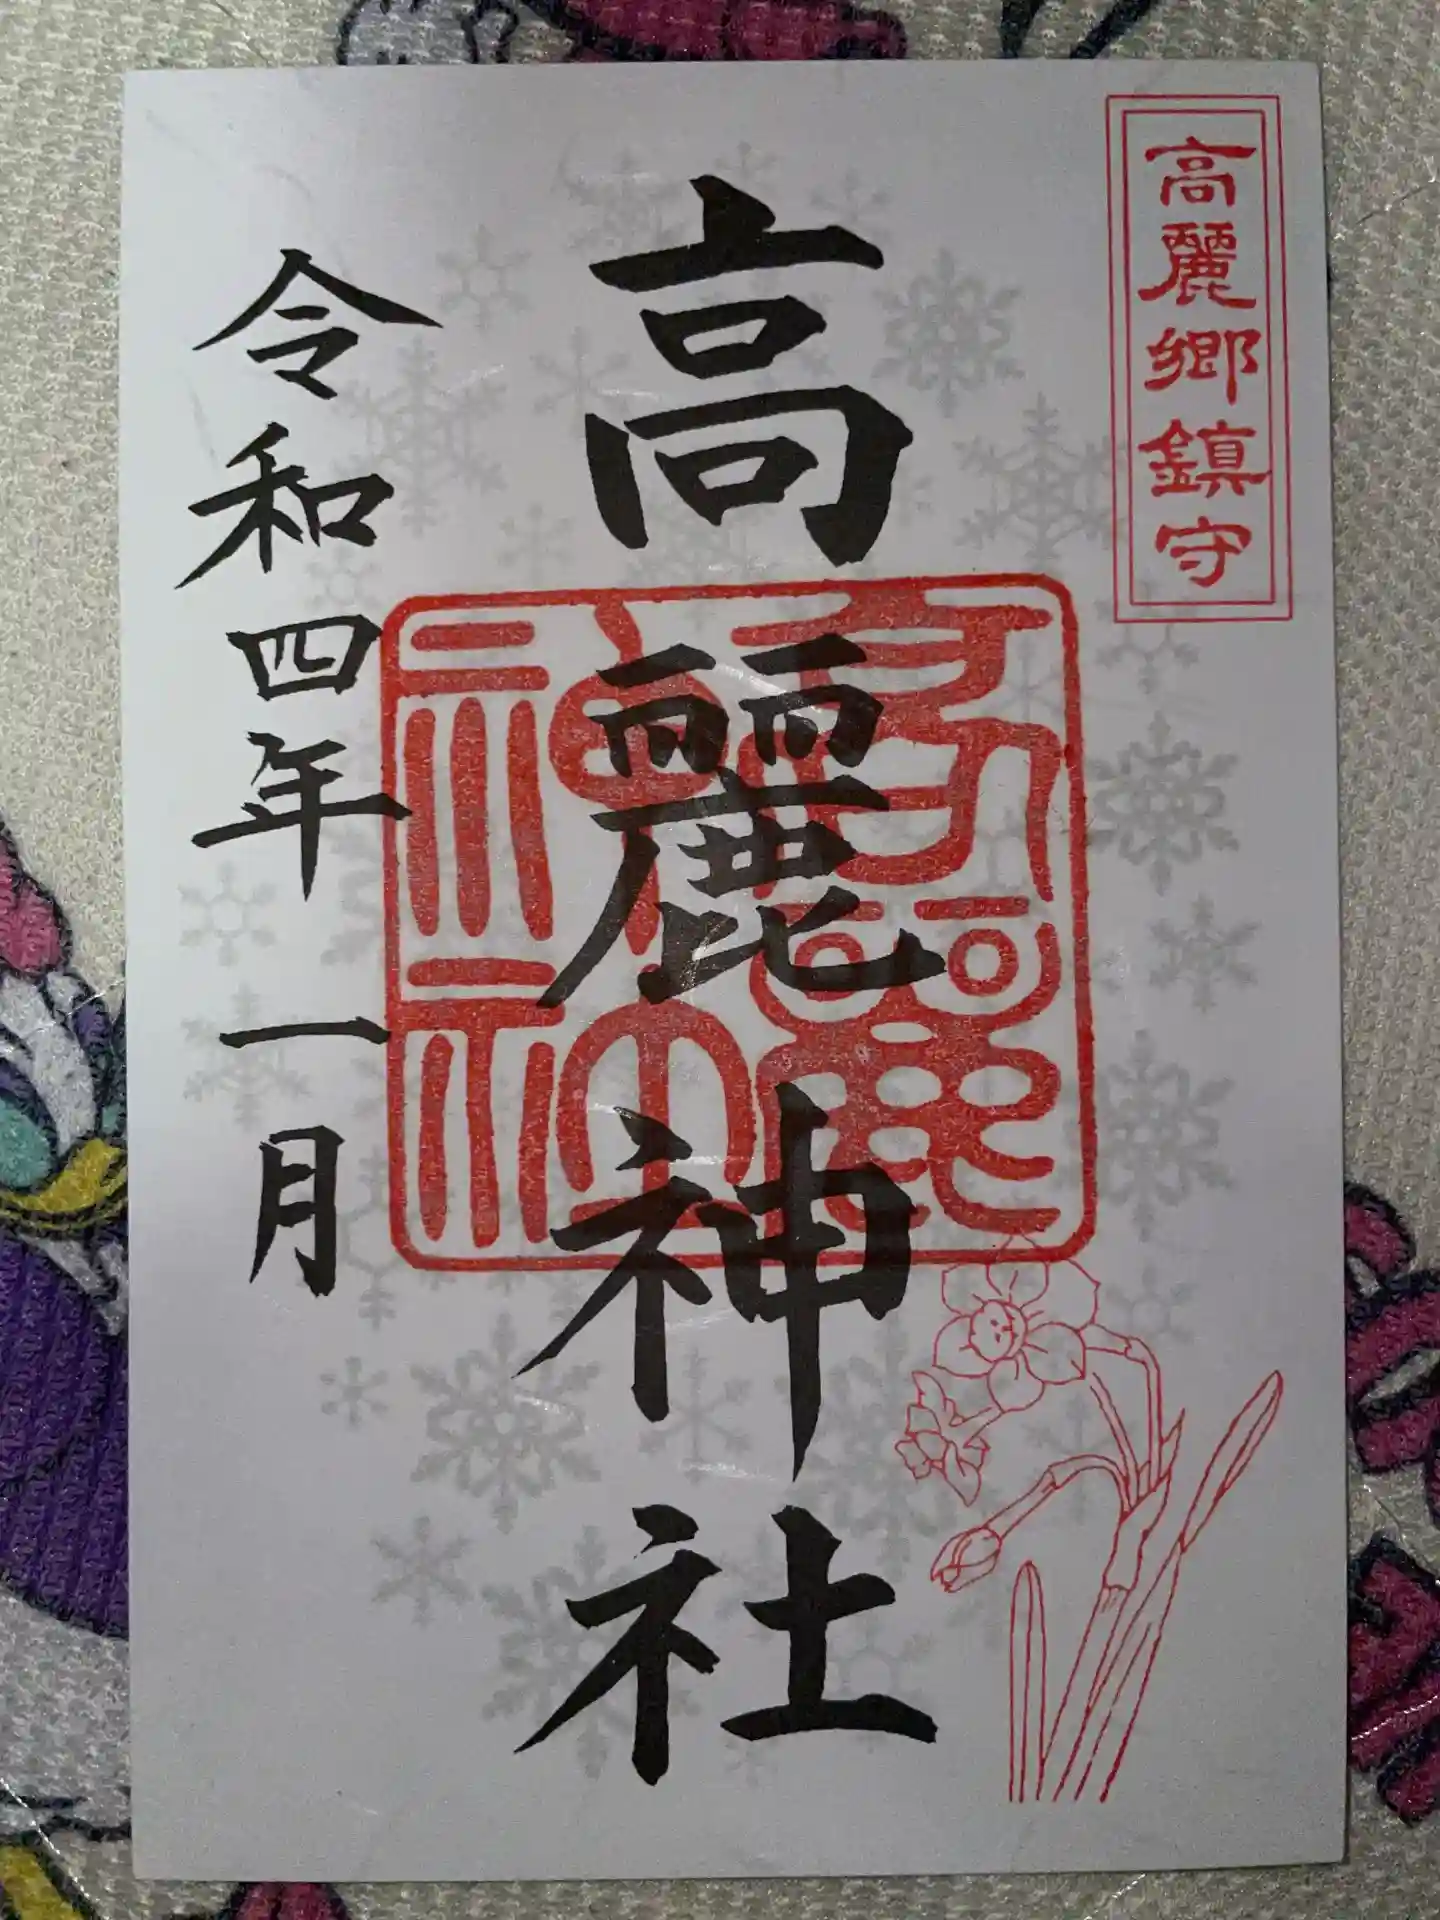 高麗郷鎮守
高麗神社
高麗神社
令和四年一月